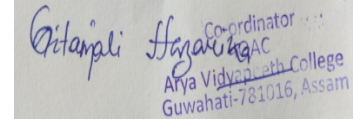 Gitanjali Hazarika
Co-ordinator
AC
Arya Vidyapeeth College
Guwahati-781016, Assam